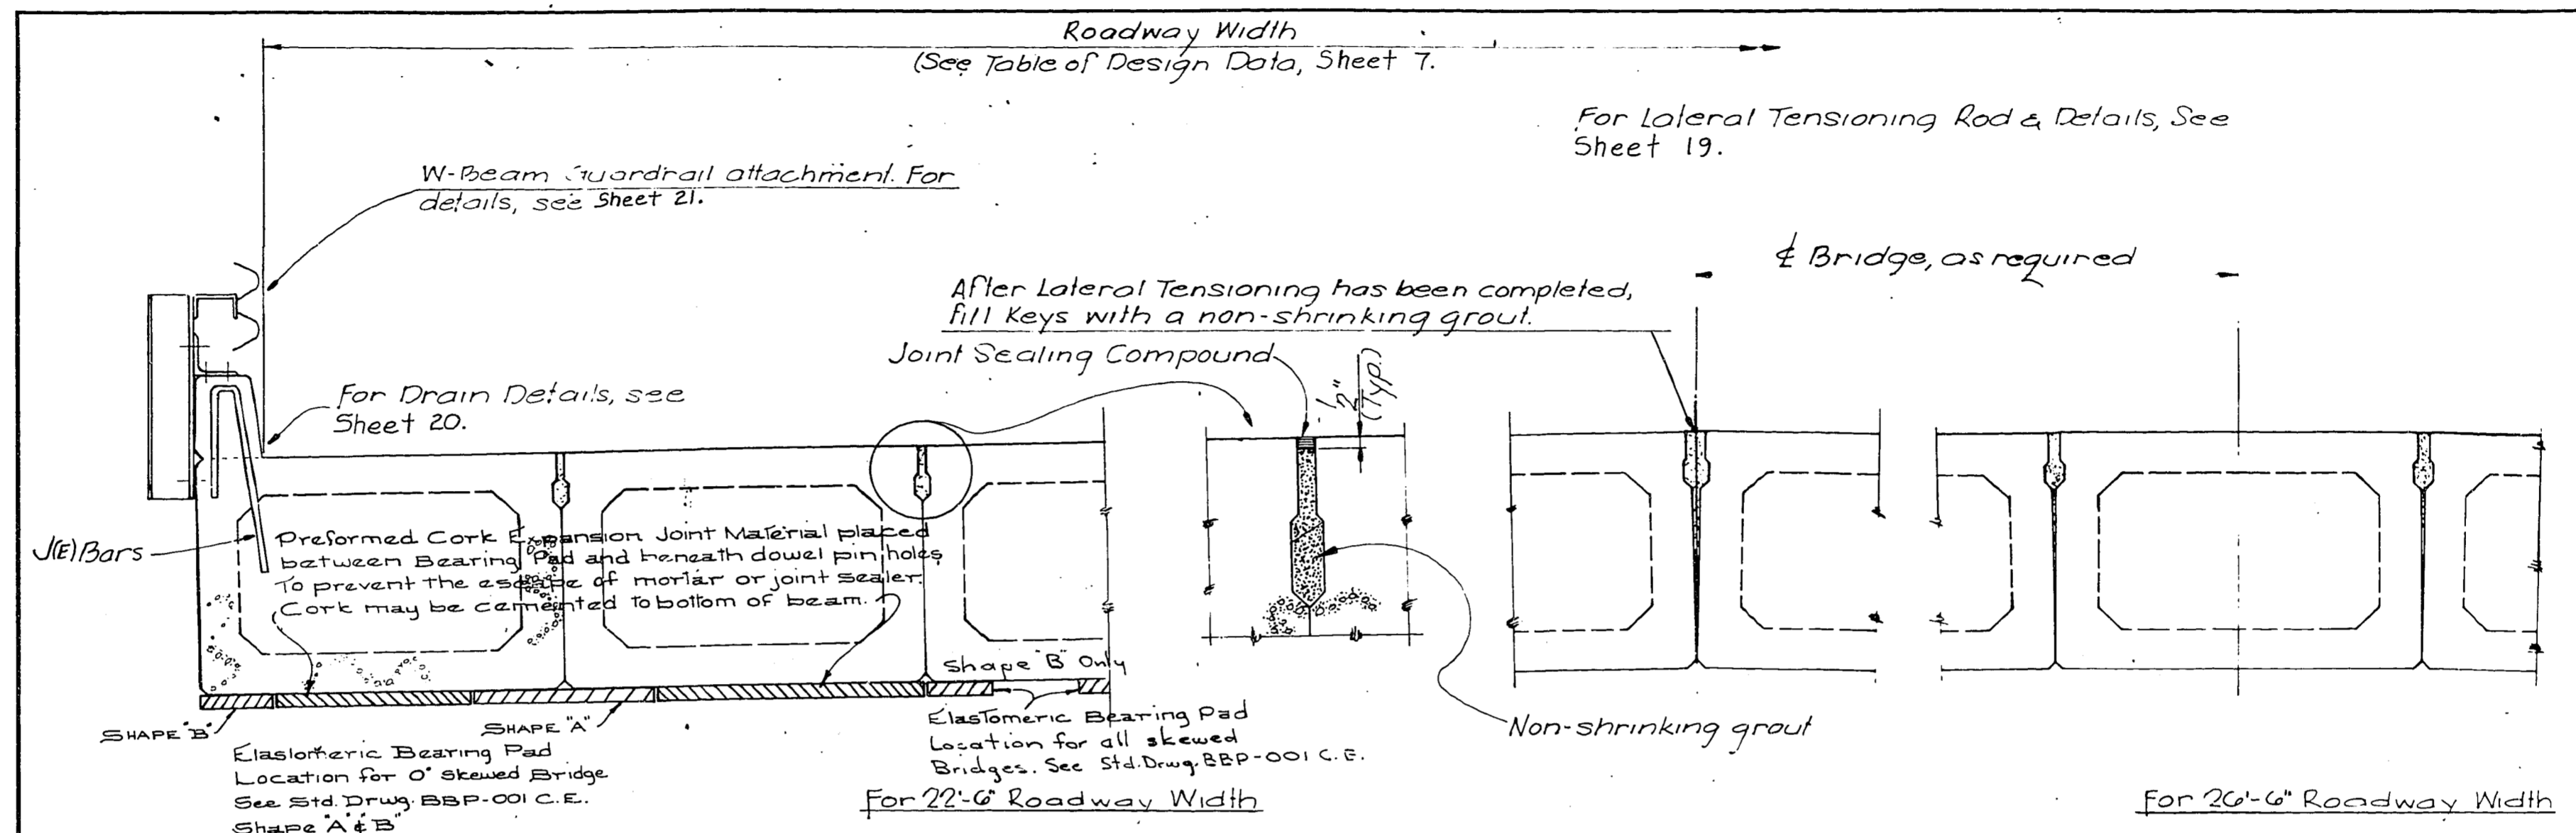 Roadway Width
(See Table of Design Data, Sheet 7.
For Lateral Tensioning Rod & Details, See
Sheet 19.
W-Beam Guardrail attachment. For
details, see Sheet 21.
℄ Bridge, as required
After Lateral Tensioning has been completed,
fill Keys with a non-shrinking grout.
Joint Sealing Compound
1/2"
(Typ.)
For Drain Details, see
Sheet 20.
J(E) Bars
Preformed Cork Expansion Joint Material placed
between Bearing Pad and beneath dowel pin holes
To prevent the escape of mortar or joint sealer.
Cork may be cemented to bottom of beam.
Shape "B" Only
SHAPE "B"
SHAPE "A"
Elastomeric Bearing Pad
Location for 0° Skewed Bridge
See Std. Drwg. BBP-001 C.E.
Shape "A" & "B"
Elastomeric Bearing Pad
Location for all skewed
Bridges. See Std. Drwg. BBP-001 C.E.
Non-shrinking grout
For 22'-6" Roadway Width
For 26'-6" Roadway Width